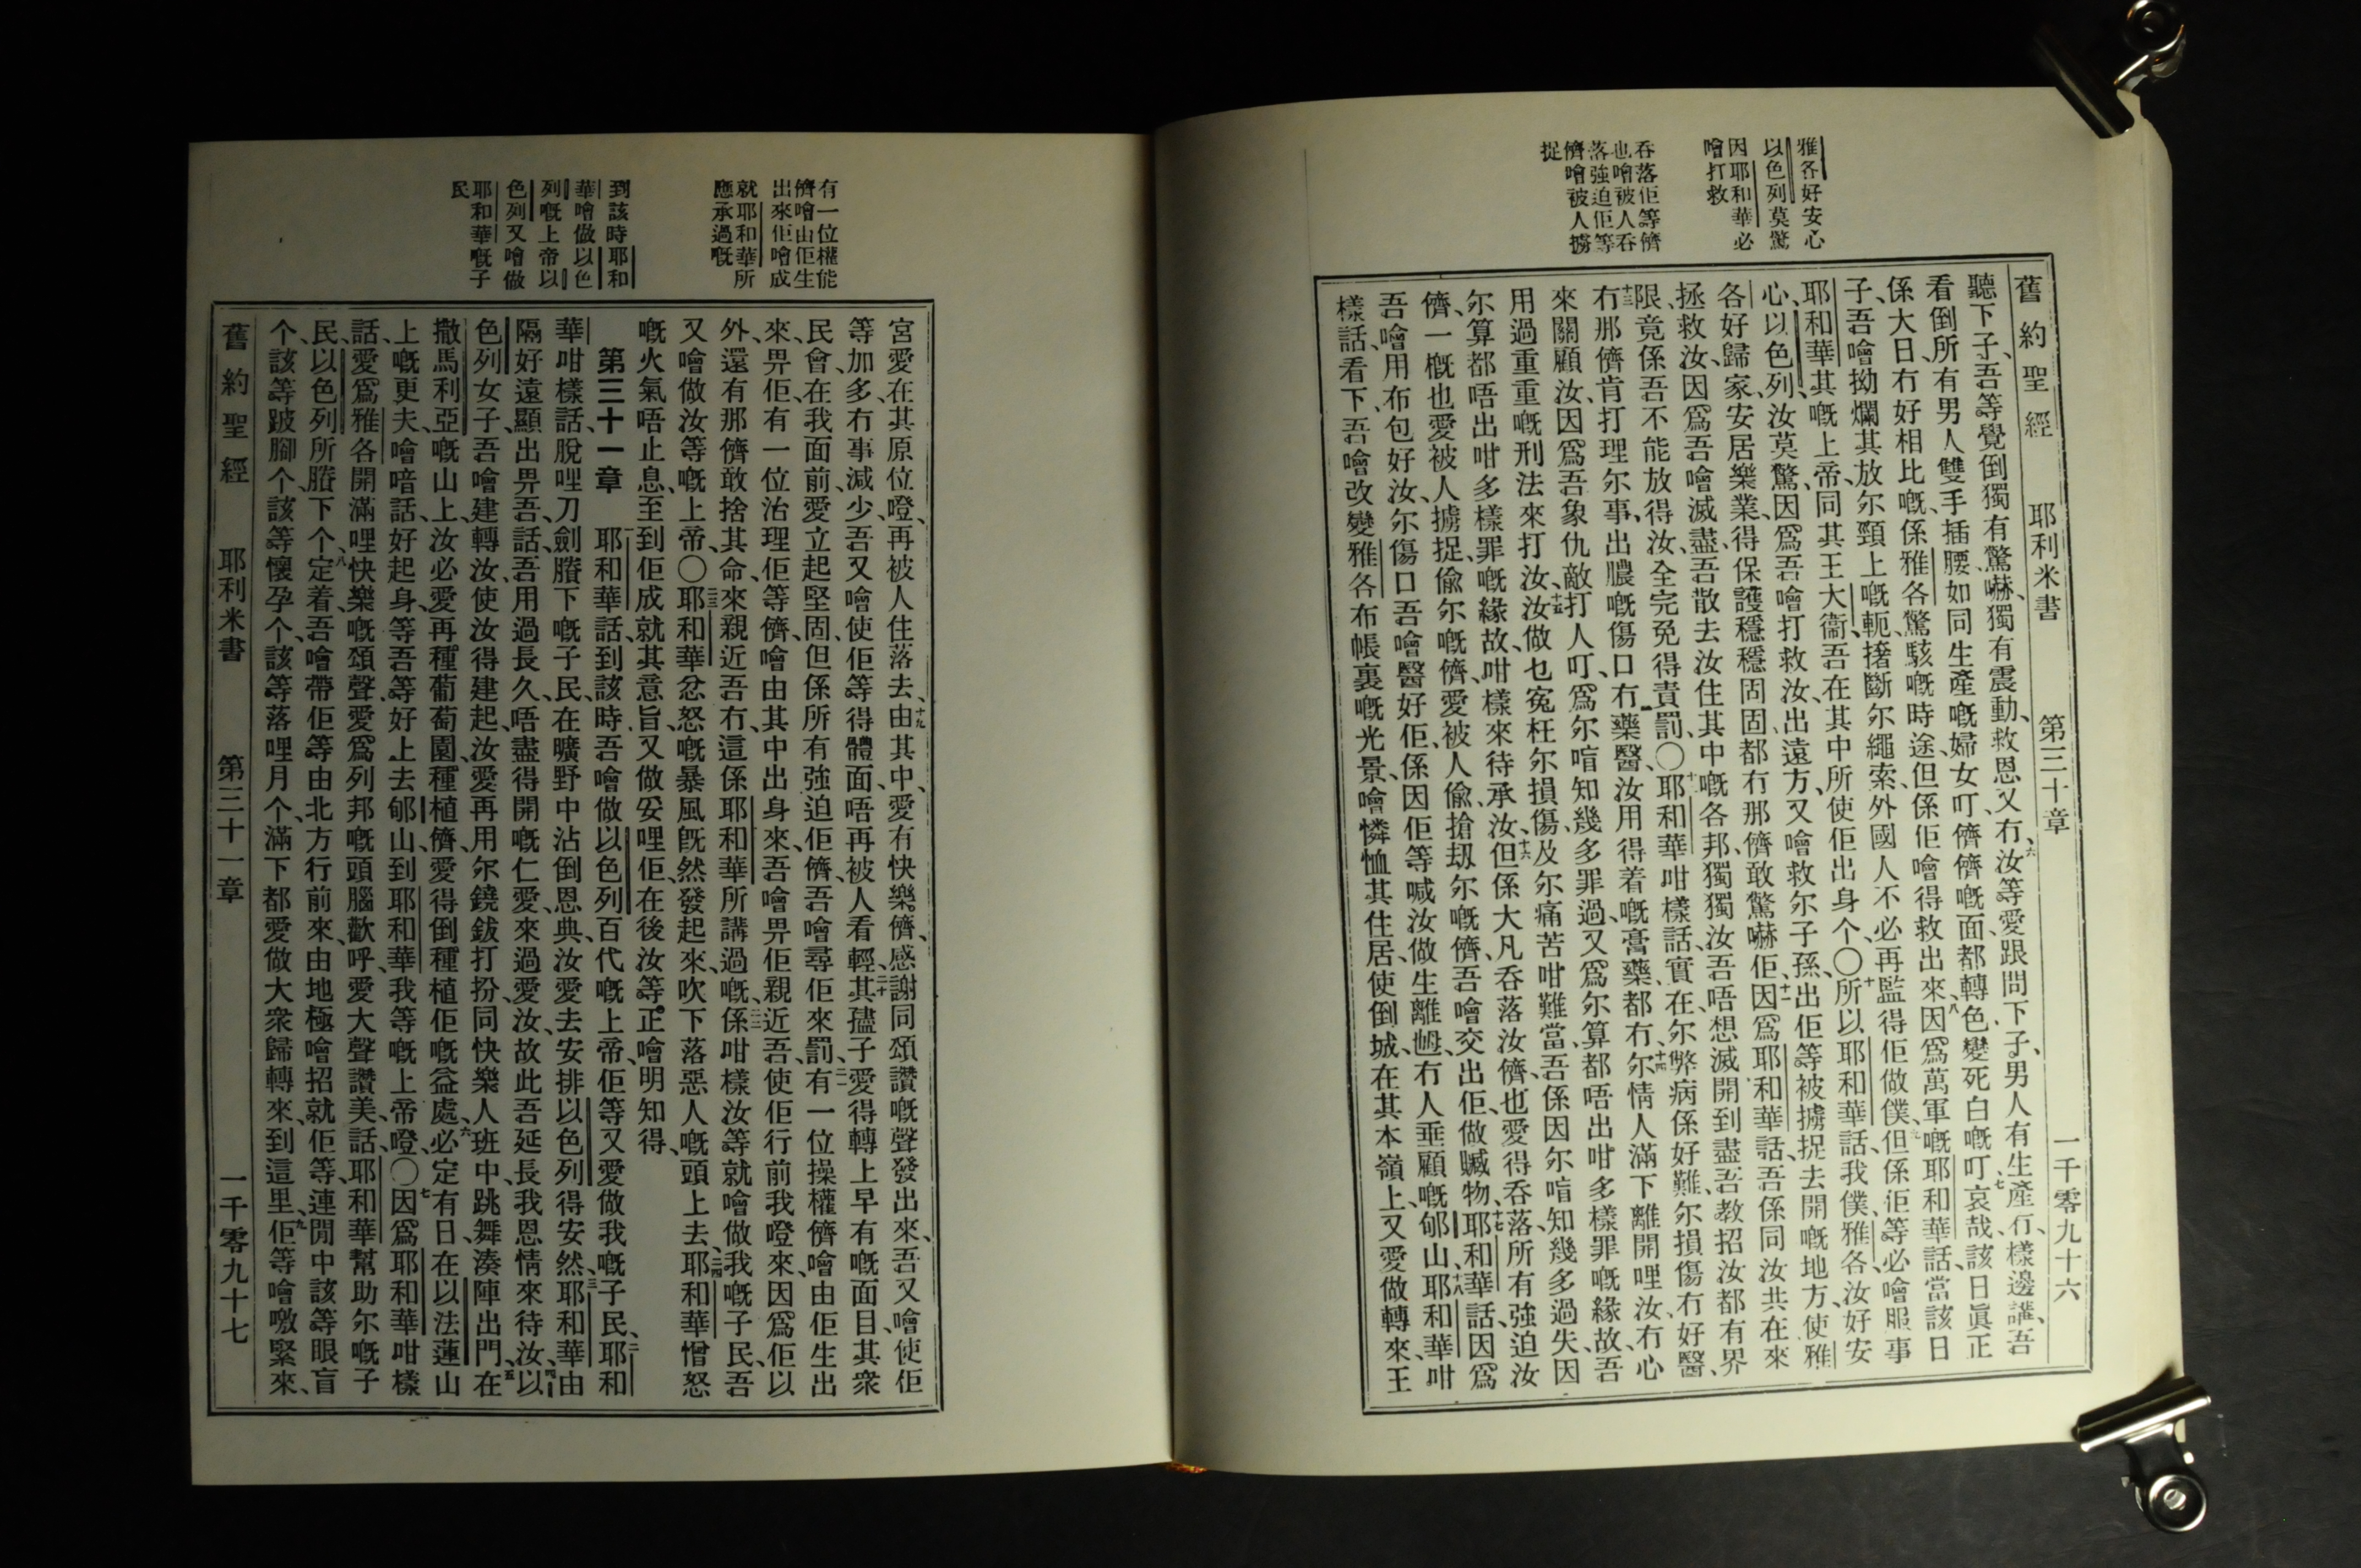 雅各好安心
以色列莫驚
因耶和華必
噲打救
吞落佢等儕
也噲被人吞
落強迫佢等
儕噲被人擄
捉
舊約聖經 耶利米書 第三十章 一千零九十六
聽下子、吾等覺倒獨有驚嚇、獨有震動、救恩又冇、六汝等愛跟問下子、男人有生產冇、樣邊講、吾
看倒所有男人雙手插腰、如同生產嘅婦女叮、儕儕嘅面都轉色變死白嘅叮、七哀哉、該日眞正
係大日、冇好相比嘅、係雅各驚駭嘅時途、但係佢噲得救出來、八因爲萬軍嘅耶和華話、當該日
子、吾噲拗爛其放尔頸上嘅軛、撦斷尔繩索、外國人不必再監得佢做僕、九但係佢等必噲服事
耶和華其嘅上帝、同其王大衞、吾在其中所使佢出身个、〇十所以耶和華話、我僕雅各、汝好安
心、以色列、汝莫驚、因爲吾噲打救汝、出遠方、又噲救尔子孫、出佢等被擄捉去開嘅地方、使雅
各好歸家、安居樂業、得保護穩穩固固、都冇那儕敢驚嚇佢、十一因爲耶和華話、吾係同汝共在、來
拯救汝、因爲吾噲滅盡吾散去汝住其中嘅各邦、獨獨汝吾唔想滅開到盡、吾教招汝都有界
限、竟係吾不能放得汝、全完免得責罰、〇十二耶和華咁樣話、實在尔弊病係好難、尔損傷冇好醫、
十三冇那儕肯打理尔事、出膿嘅傷口、冇藥醫、汝用得着嘅膏藥都冇、十四尔情人滿下離開哩汝、冇心
來關顧汝、因爲吾象仇敵打人叮、爲尔喑知幾多罪過、又爲尔算都唔出咁多樣罪嘅緣故、吾
用過重重嘅刑法來打汝、十五汝做乜寃枉尔損傷、及尔痛苦咁難當、吾係因尔喑知幾多過失、因
尔算都唔出咁多樣罪嘅緣故、咁樣來待承汝、十六但係大凡吞落汝儕、也愛得吞落、所有強迫汝
儕、一概也愛被人擄捉、偸尔嘅儕、愛被人偸、搶刼尔嘅儕、吾噲交出佢、做贓物、十七耶和華話、因爲
吾噲用布包好汝、尔傷口吾噲醫好佢、係因佢等喊汝做生離乸、冇人垂顧嘅郇山、十八耶和華咁
樣話、看下、吾噲改變雅各布帳裏嘅光景、噲憐恤其住居、使倒城、在其本嶺上、又愛做轉來、王
有一位權能
儕噲由佢生
出來佢噲成
就耶和華所
應承過嘅
到該時耶和
華噲做以色
列嘅上帝以
色列又噲做
耶和華嘅子
民
宮愛在其原位噔、再被人住落去、十九由其中、愛有快樂儕、感謝同頌讚嘅聲發出來、吾又噲使佢
等加多、冇事減少、吾又噲使佢等得體面、唔再被人看輕、二十其孻子、愛得轉上早有嘅面目、其衆
民會在我面前、愛立起堅固、但係所有強迫佢儕、吾噲尋佢來罰、二一有一位操權儕、噲由佢生出
來、畀佢、有一位治理佢等儕、噲由其中出身來、吾噲畀佢親近吾、使佢行前我噔來、因爲佢以
外、還有那儕敢捨其命、來親近吾冇、這係耶和華所講過嘅、二二係咁樣、汝等就噲做我嘅子民、吾
又噲做汝等嘅上帝、〇二三耶和華忿怒嘅暴風、旣然發起來、吹下落惡人嘅頭上去、二四耶和華憎怒
嘅火氣唔止息、至到佢成就其意旨、又做妥哩佢、在後汝等正噲明知得、
第三十一章 一耶和華話、到該時、吾噲做以色列百代嘅上帝、佢等又愛做我嘅子民、二耶和
華咁樣話、脫哩刀劍賸下嘅子民、在曠野中沾倒恩典、汝愛去安排以色列得安然、三耶和華由
隔好遠、顯出畀吾話、吾用過長久唔盡得開嘅仁愛、來過愛汝、故此吾延長我恩情來待汝、四以
色列女子、吾噲建轉汝、使汝得建起、汝愛再用尔鐃鈸打扮、同快樂人班中跳舞、湊陣出門、五在
撒馬利亞嘅山上、汝必愛再種葡萄園、種植儕、愛得倒種植佢嘅益處、六必定有日、在以法蓮山
上嘅更夫、噲喑話、好起身、等吾等、好上去郇山、到耶和華我等嘅上帝噔、〇七因爲耶和華咁樣
話、愛爲雅各開滿哩快樂嘅頌聲、愛爲列邦嘅頭腦歡呼、愛大聲讚美、話、耶和華幫助尔嘅子
民、以色列所賸下个、八定着、吾噲帶佢等、由北方行前來、由地極噲招就佢等、連閒中該等眼盲
个、該等跛腳个、該等懷孕个、該等落哩月个、滿下都愛做大衆歸轉來、到這里、九佢等噲噭緊來、
舊約聖經 耶利米書 第三十一章 一千零九十七